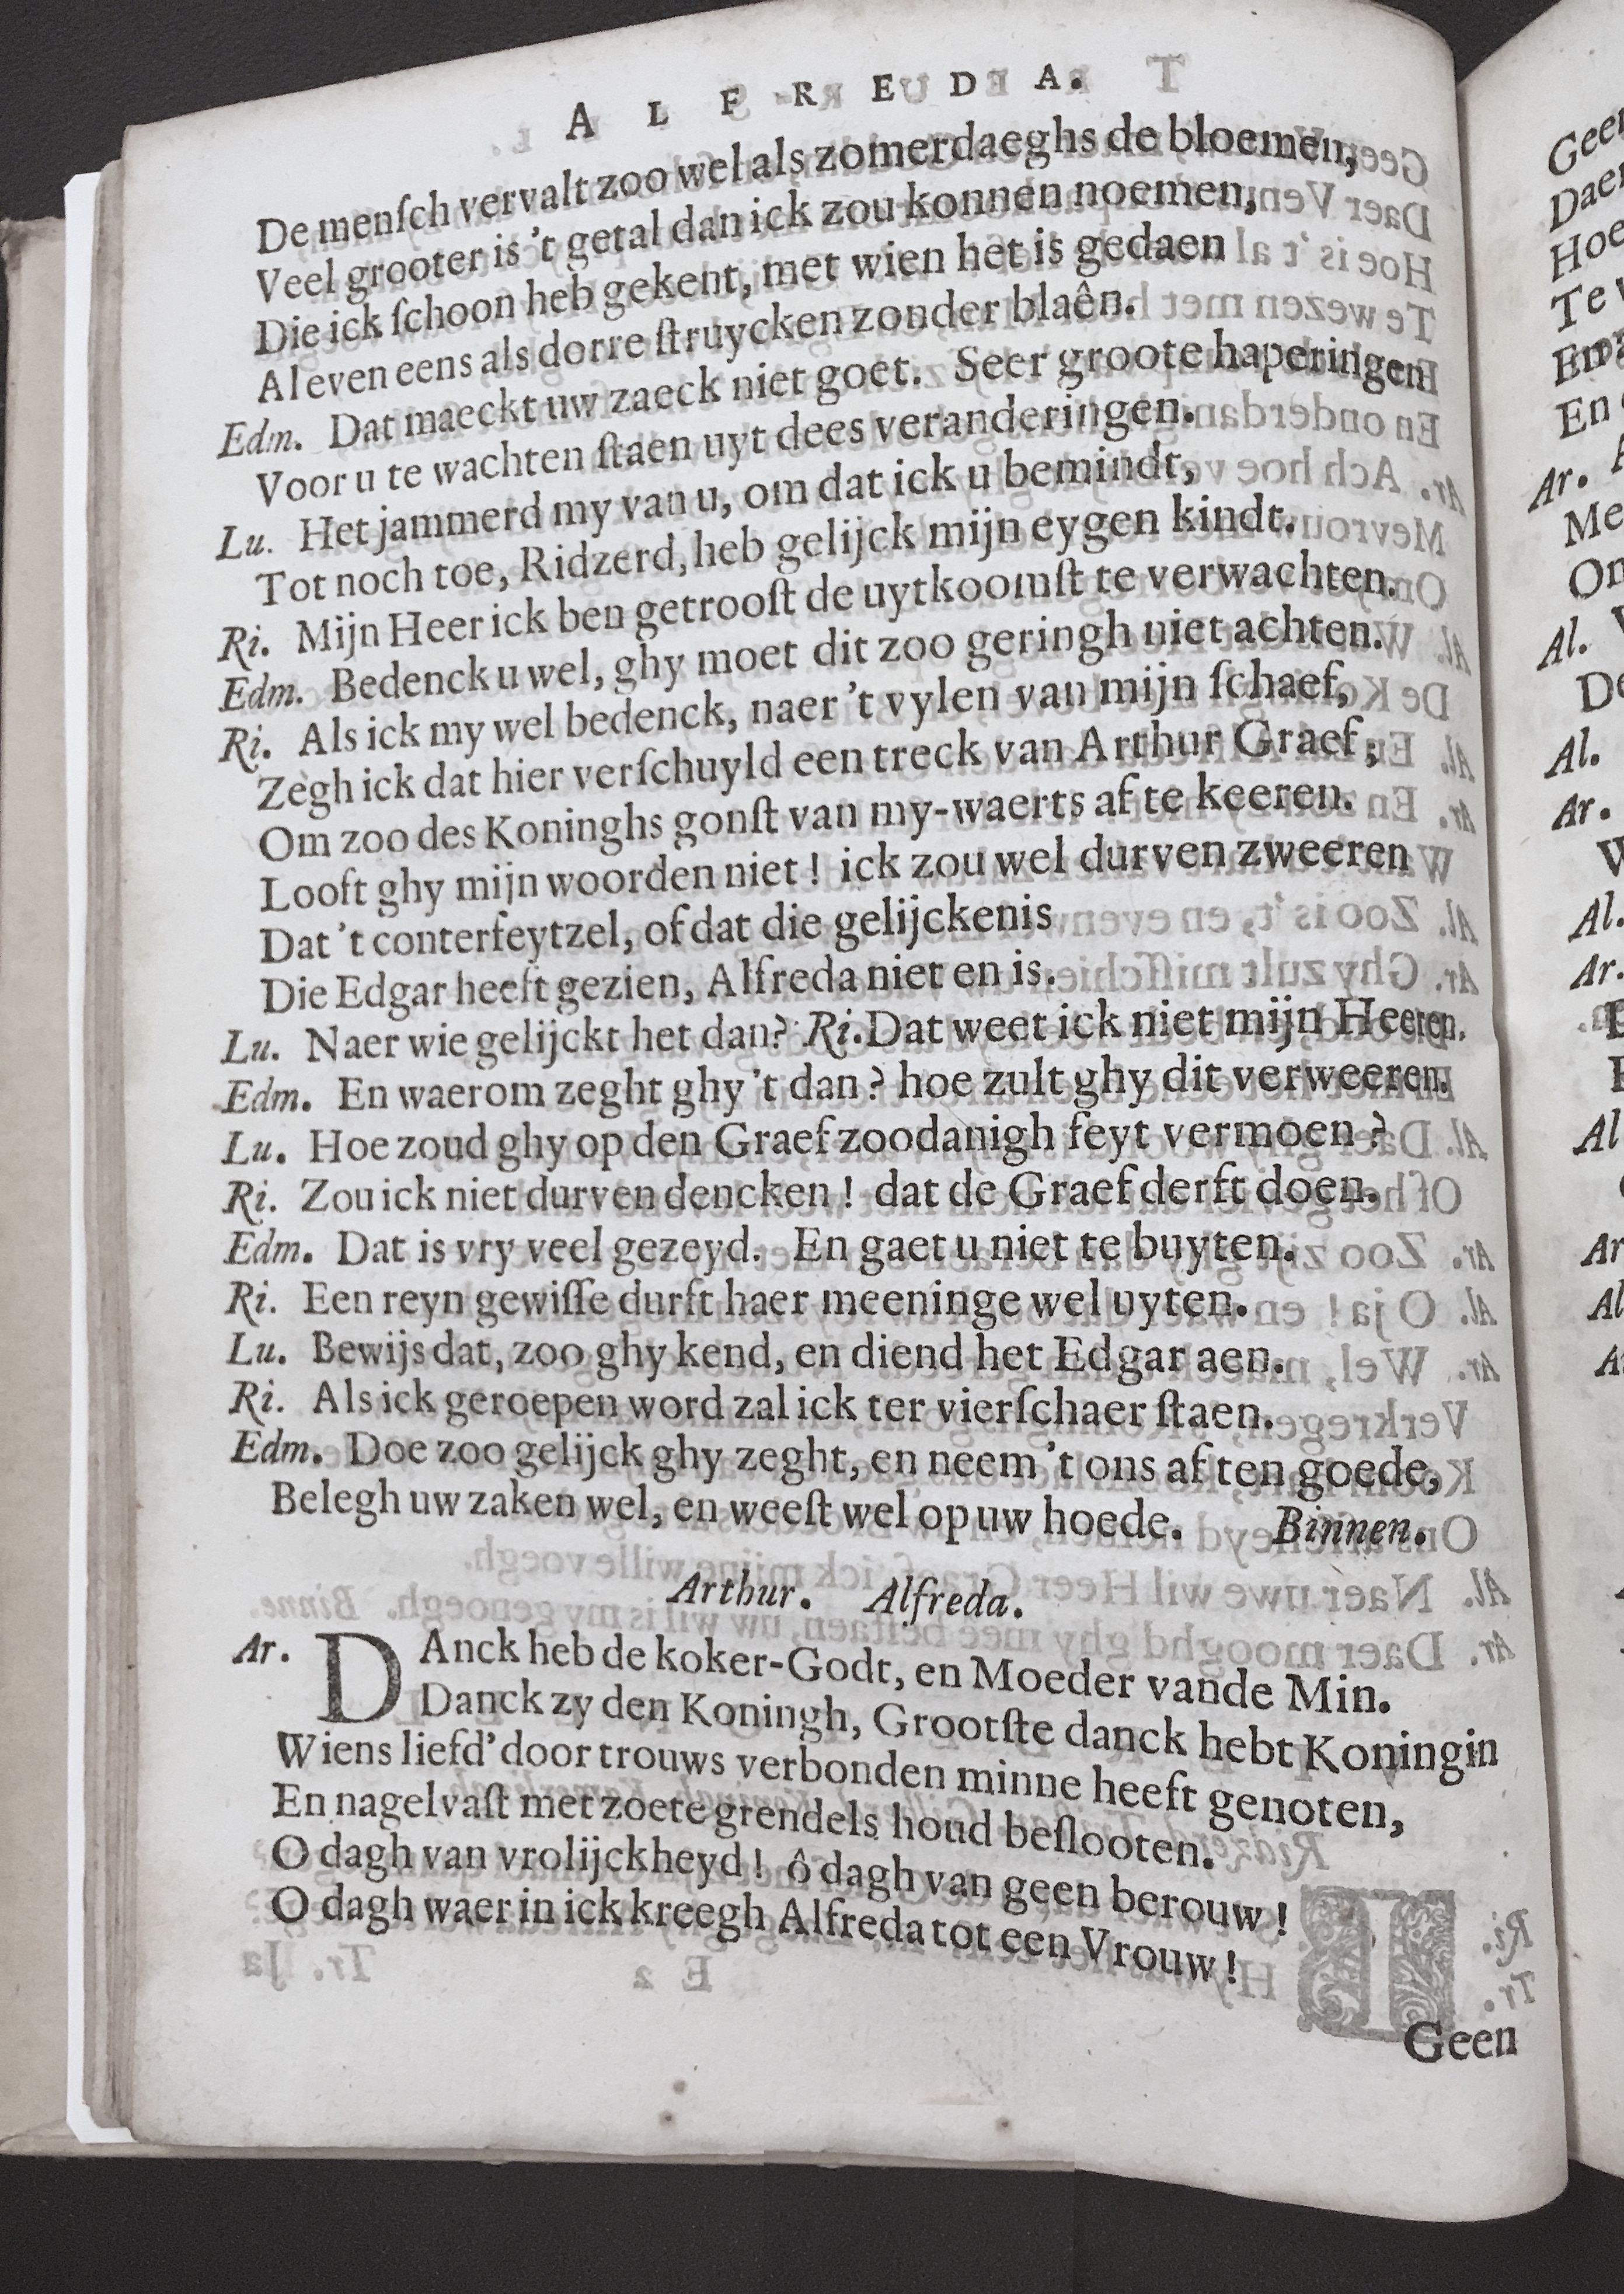 ALFREDA.
De menſch vervalt zoo wel als zomerdaeghs de bloemen,
Veel grooter is 't getal dan ick zou konnen noemen,
Die ick ſchoon heb gekent, met wien het is gedaen
Al even eens als dorre ſtruycken zonder blaên.
Edm. Dat maeckt uw zaeck niet goet. Seer groote haperingen
Voor u te wachten ſtaen uyt dees veranderingen.
Lu. Het jammerd my van u, om dat ick u bemindt,
Tot noch toe, Ridzerd, heb gelijck mijn eygen kindt.
Ri. Mijn Heer ick ben getrooſt de uytkoomſt te verwachten.
Edm. Bedenck u wel, ghy moet dit zoo geringh niet achten.
Ri. Als ick my wel bedenck, naer 't vylen van mijn ſchaef,
Zegh ick dat hier verſchuyld een treck van Arthur Graef;
Om zoo des Koninghs gonſt van my-waerts af te keeren.
Looft ghy mijn woorden niet! ick zou wel durven zweeren
Dat 't conterfeytzel, of dat die gelijckenis
Die Edgar heeft gezien, Alfreda niet en is.
Lu. Naer wie gelijckt het dan? Ri. Dat weet ick niet mijn Heere.
Edm. En waerom zeght ghy 't dan? hoe zult ghy dit verweeren.
Lu. Hoe zoud ghy op den Graef zoodanigh feyt vermoen?
Ri. Zou ick niet durven dencken! dat de Graef derft doen.
Edm. Dat is vry veel gezeyd. En gaet u niet te buyten.
Ri. Een reyn gewiſſe durft haer meeninge wel uyten.
Lu. Bewijs dat, zoo ghy kend, en diend het Edgar aen.
Ri. Als ick geroepen word zal ick ter vierſchaer ſtaen.
Edm. Doe zoo gelijck ghy zeght, en neem 't ons af ten goede,
Belegh uw zaken wel, en weeſt wel op uw hoede. Binnen.
Arthur. Alfreda.
Ar. DAnck heb de koker-Godt, en Moeder vande Min.
Danck zy den Koningh, Grootſte danck hebt Koningin
Wiens liefd' door trouws verbonden minne heeft genoten,
En nagelvaſt met zoete grendels houd beſlooten.
O dagh van vrolijckheyd! ô dagh van geen berouw!
O dagh waer in ick kreegh Alfreda tot een Vrouw!
Geen